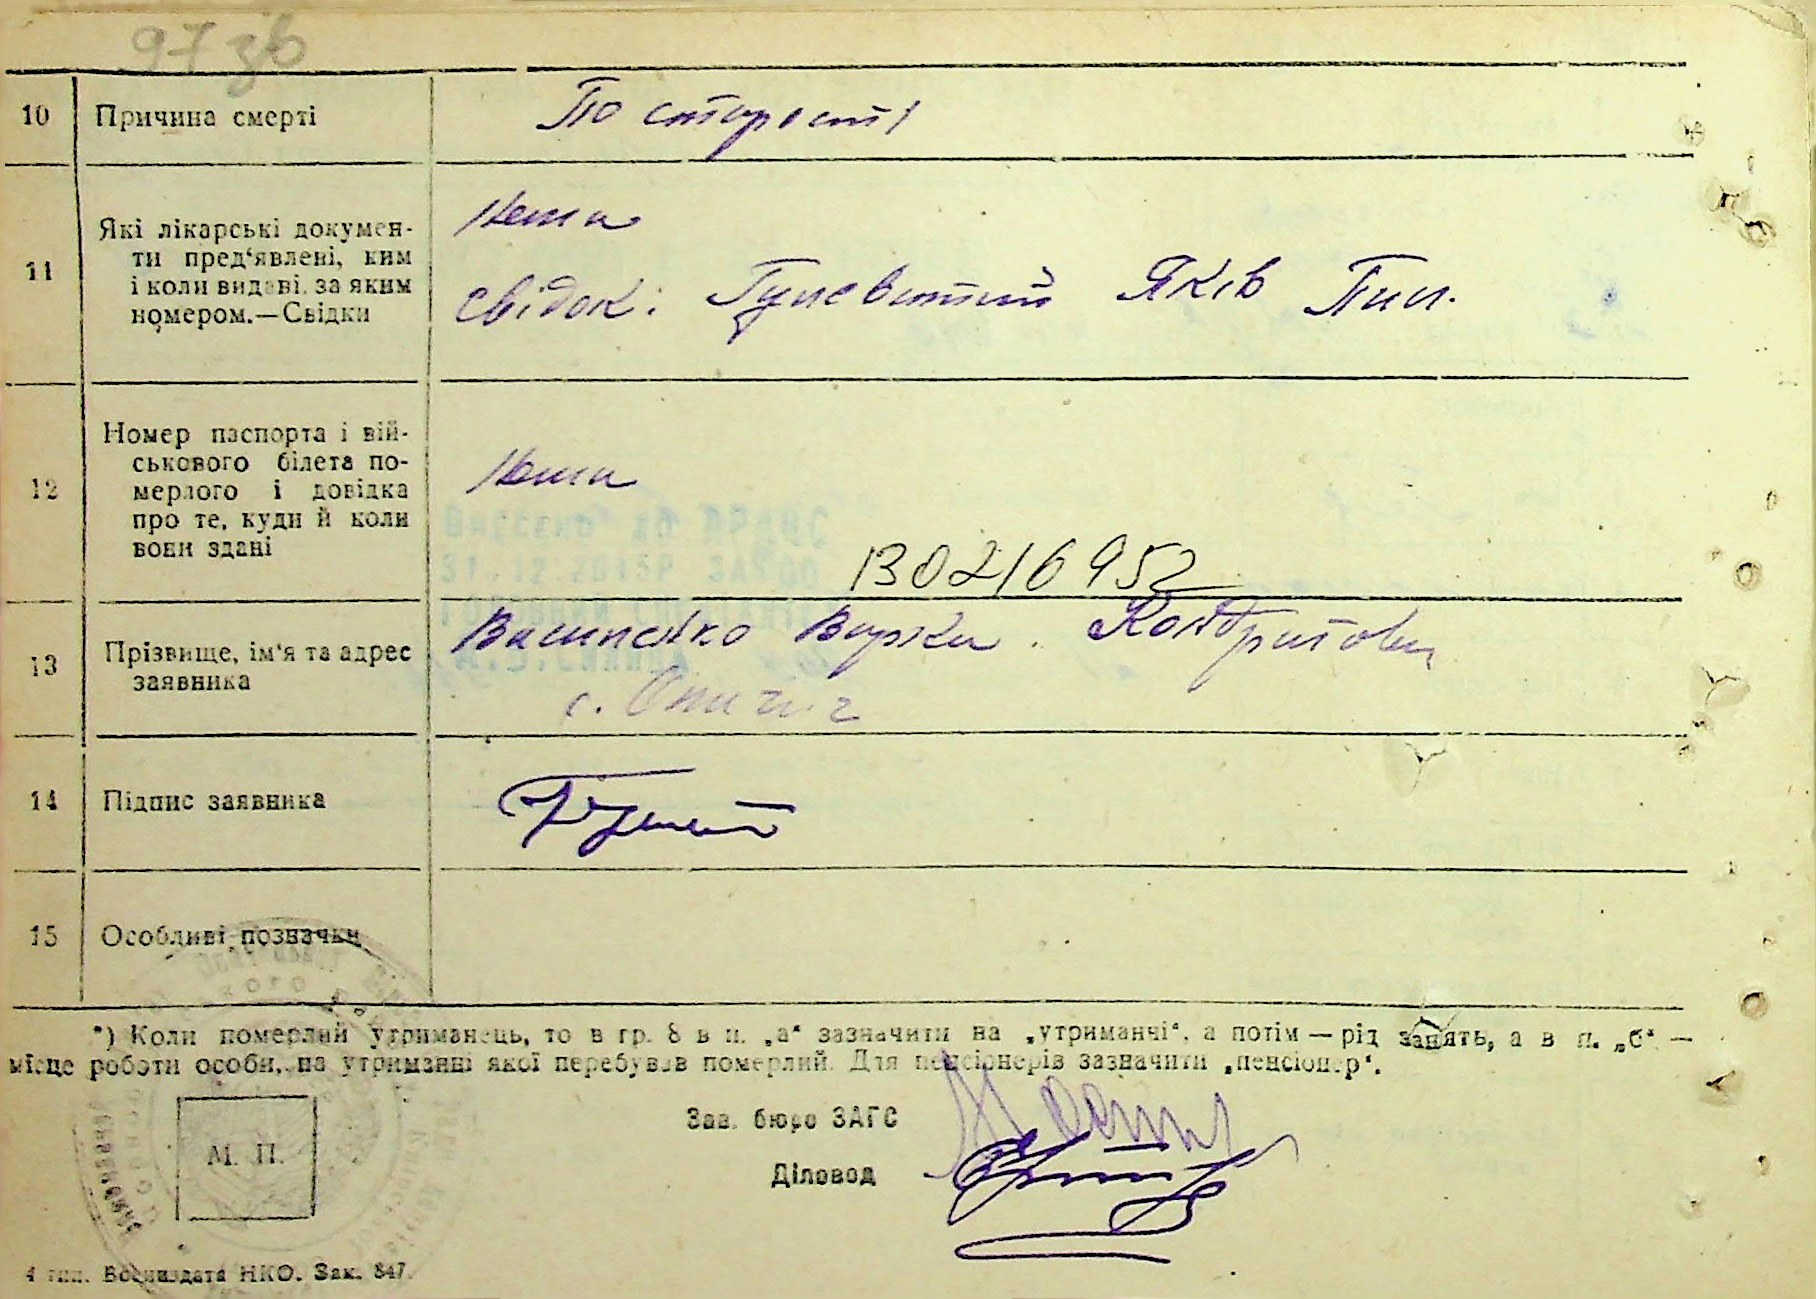 97 зв
10 Причина смерті По старості
11 Які лікарські докумен-
ти пред‘явлені, ким
і коли видані, за яким
номером.—Свідки
Нема
Свідок: Яків Пил.
12 Номер паспорта і вій-
ськового білета по-
мерлого і довідка
про те, куди й коли
вони здані
Нема
Внесено до ДРАЦС
31.12.2015Р
1302/6952
13 Прізвище, ім‘я та адрес
заявника
Василенко Варка Кондратовн
с.
14 Підпис заявника
15 Особливі позначки
*) Коли померлий утриманець, то в гр. 8 в п. „а“ зазначити на „утриманчі“, а потім — рід занять, а в п. „б“ —
місце роботи особи, на утриманні якої перебував померлий. Для пенсіонерів зазначити „пенсіонер“.
Зав. бюро ЗАГС
М. П.
Діловод
4 тип. Воениздата НКО. Зак. 847.